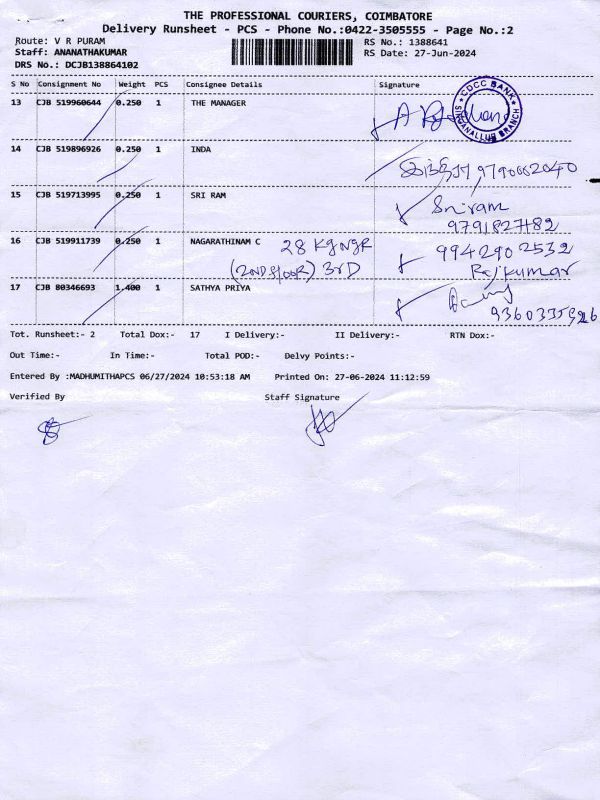 THE PROFESSIONAL COURIERS, COIMBATORE
Delivery Runsheet - PCS - Phone No.:0422-3505555 - Page No.:2
Route: V R PURAM
RS No.: 1388641
Staff: ANANATHAKUMAR
RS Date: 27-Jun-2024
DRS No.: DCJB138864102
S No Consignment No Weight PCS Consignee Details Signature
13 CJB 519960644 0.250 1 THE MANAGER
CDCC BANK
SINGANALLUR BRANCH
14 CJB 519896926 0.250 1 INDA
இந்திரா 9790662040
15 CJB 519713995 0.250 1 SRI RAM
Sriram
9791827482
16 CJB 519911739 0.250 1 NAGARATHINAM C 28 KgNgR 9942902532
(2ND FlooR) 3RD Rajkumar
17 CJB 80346693 1.400 1 SATHYA PRIYA
Tot. Runsheet:- 2 Total Dox:- 17 I Delivery:- II Delivery:- RTN Dox:-
Out Time:- In Time:- Total POD:- Delvy Points:-
Entered By :MADHUMITHAPCS 06/27/2024 10:53:18 AM Printed On: 27-06-2024 11:12:59
Verified By Staff Signature